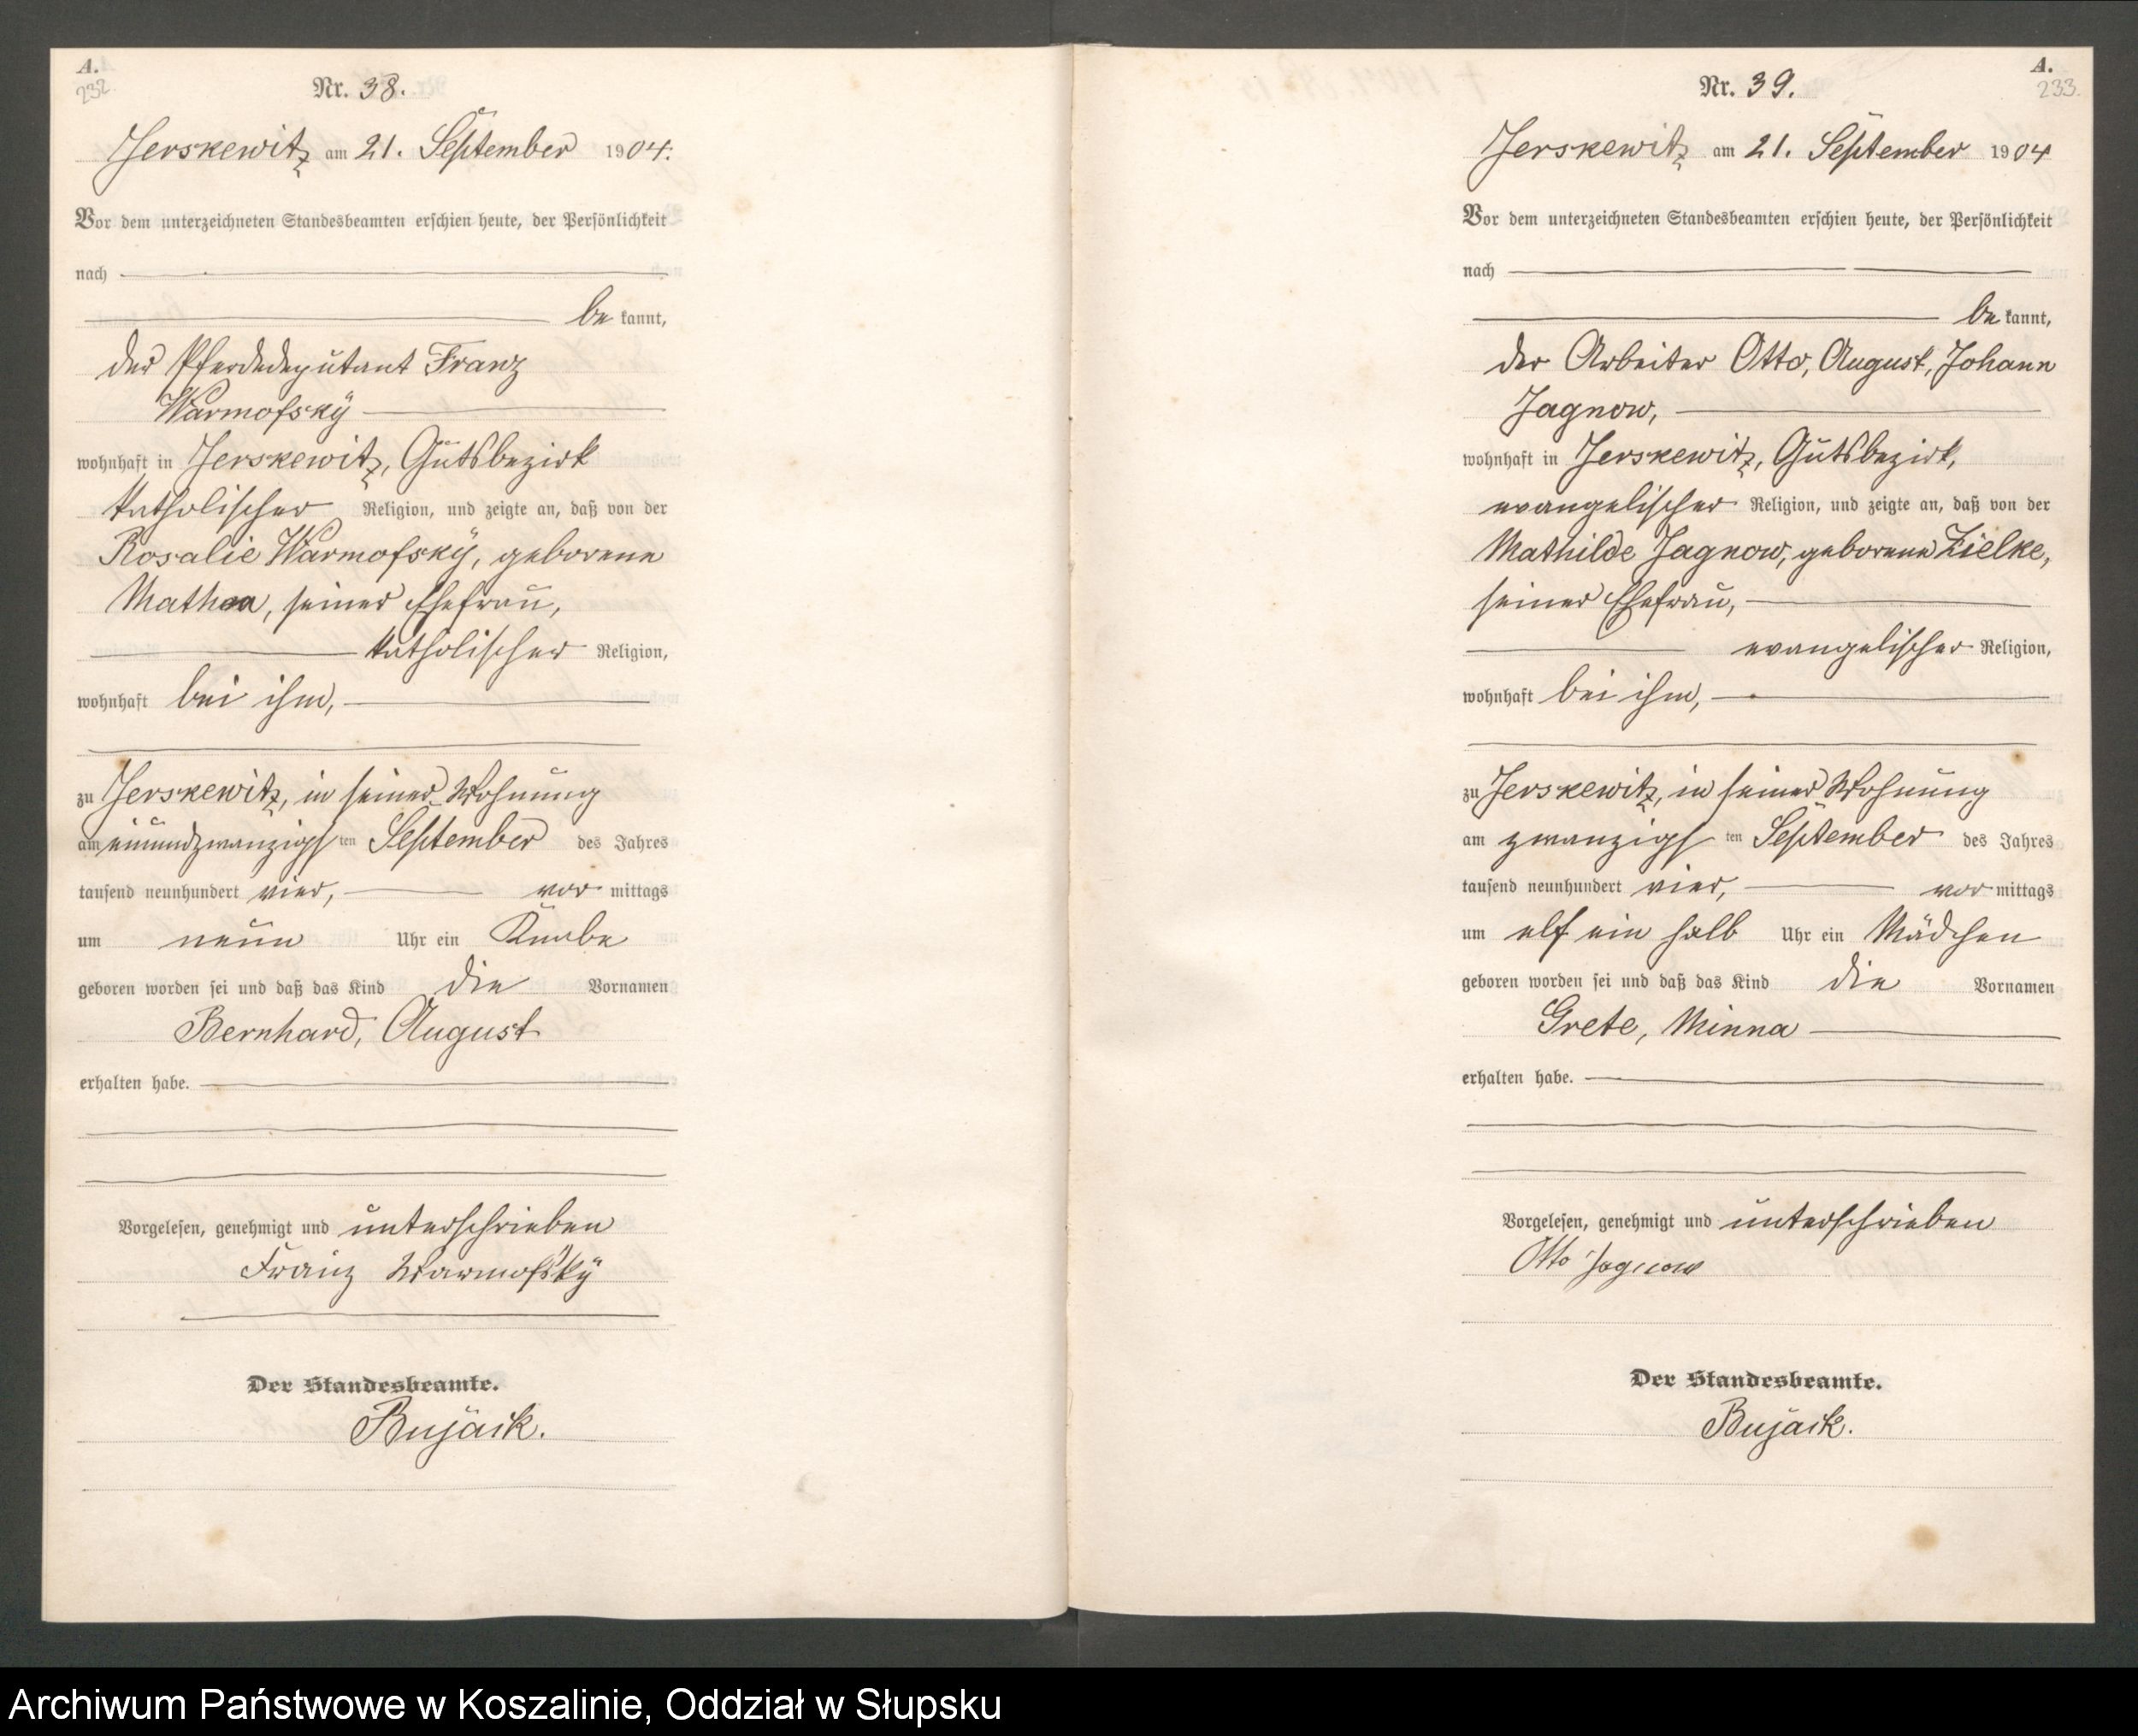 A.
232.
Nr. 38.
Jerskewitz am 21. September 1904.
Vor dem unterzeichneten Standesbeamten erschien heute, der Persönlichkeit
nach
be kannt,
der Pferdedeputant Franz
Warmofsky
wohnhaft in Jerskewitz, Gutsbezirk
katholischer Religion, und zeigte an, daß von der
Rosalie Warmofsky, geborene
Mathea, seiner Ehefrau,
katholischer Religion,
wohnhaft bei ihm,
zu Jerskewitz, in seiner Wohnung
am einundzwanzigsten September des Jahres
tausend neunhundert vier, vor mittags
um neun Uhr ein Knabe
geboren worden sei und daß das Kind die Vornamen
Bernhard, August
erhalten habe.
Vorgelesen, genehmigt und unterschrieben
Franz Warmofsky
Der Standesbeamte.
Bujack.
A.
233.
Nr. 39.
Jerskewitz am 21. September 1904
Vor dem unterzeichneten Standesbeamten erschien heute, der Persönlichkeit
nach
be kannt,
der Arbeiter Otto, August, Johann
Jagnow,
wohnhaft in Jerskewitz, Gutsbezirk,
evangelischer Religion, und zeigte an, daß von der
Mathilde Jagnow, geborene Zielke,
seiner Ehefrau,
evangelischer Religion,
wohnhaft bei ihm,
zu Jerskewitz, in seiner Wohnung
am zwanzigsten September des Jahres
tausend neunhundert vier, vor mittags
um elf ein halb Uhr ein Mädchen
geboren worden sei und daß das Kind die Vornamen
Grete, Minna
erhalten habe.
Vorgelesen, genehmigt und unterschrieben
Otto Jagnow
Der Standesbeamte.
Bujack.
Archiwum Państwowe w Koszalinie, Oddział w Słupsku